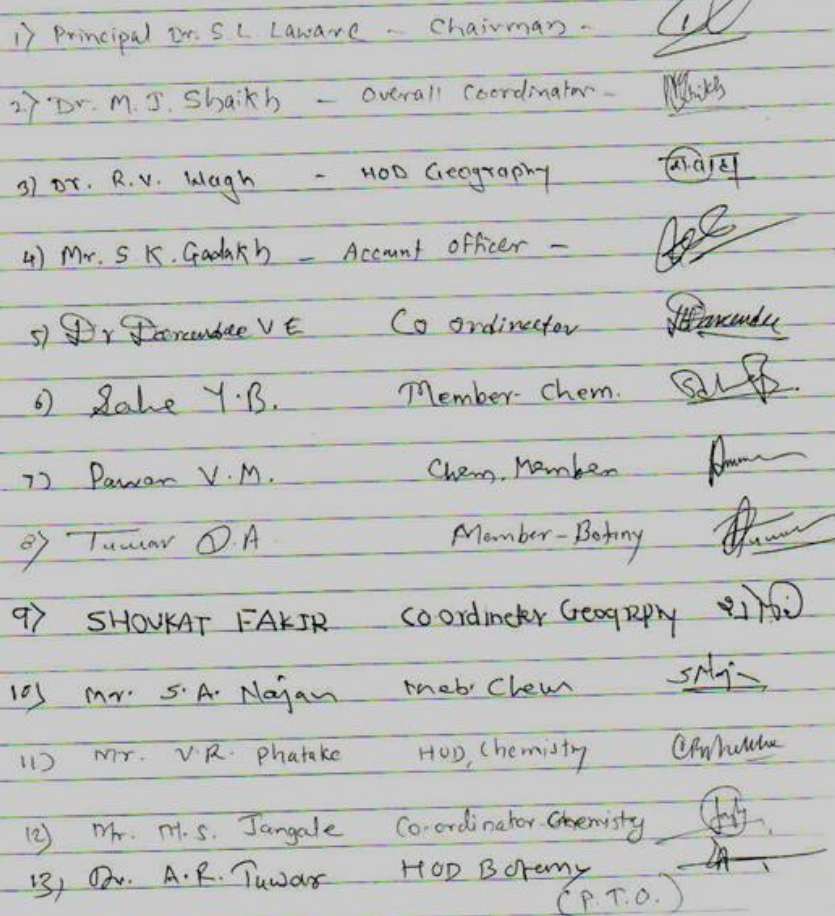 1) Principal Dr. S. L. Laware - Chairman -
2) Dr. M. J. Shaikh - Overall Coordinator -
3) Dr. R. V. Wagh - HOD Geography
4) Mr. S K. Gadakh - Account officer -
5) Dr Darandale V E Co ordinator
6) Sahe Y. B. Member - Chem.
7) Pawar V. M. Chem. Member
8) Tuwar D. A Member - Botany
9) SHOUKAT FAKIR Co ordineter Geogrpny
10) Mr. S. A. Najan Meb. Chem
11) Mr. V. R. Phatake HOD, Chemistry
12) Mr. M. S. Jangale Co-ordinator Chemistry
13) Dr. A. R. Tuwar HOD Botany
(P. T. O.)